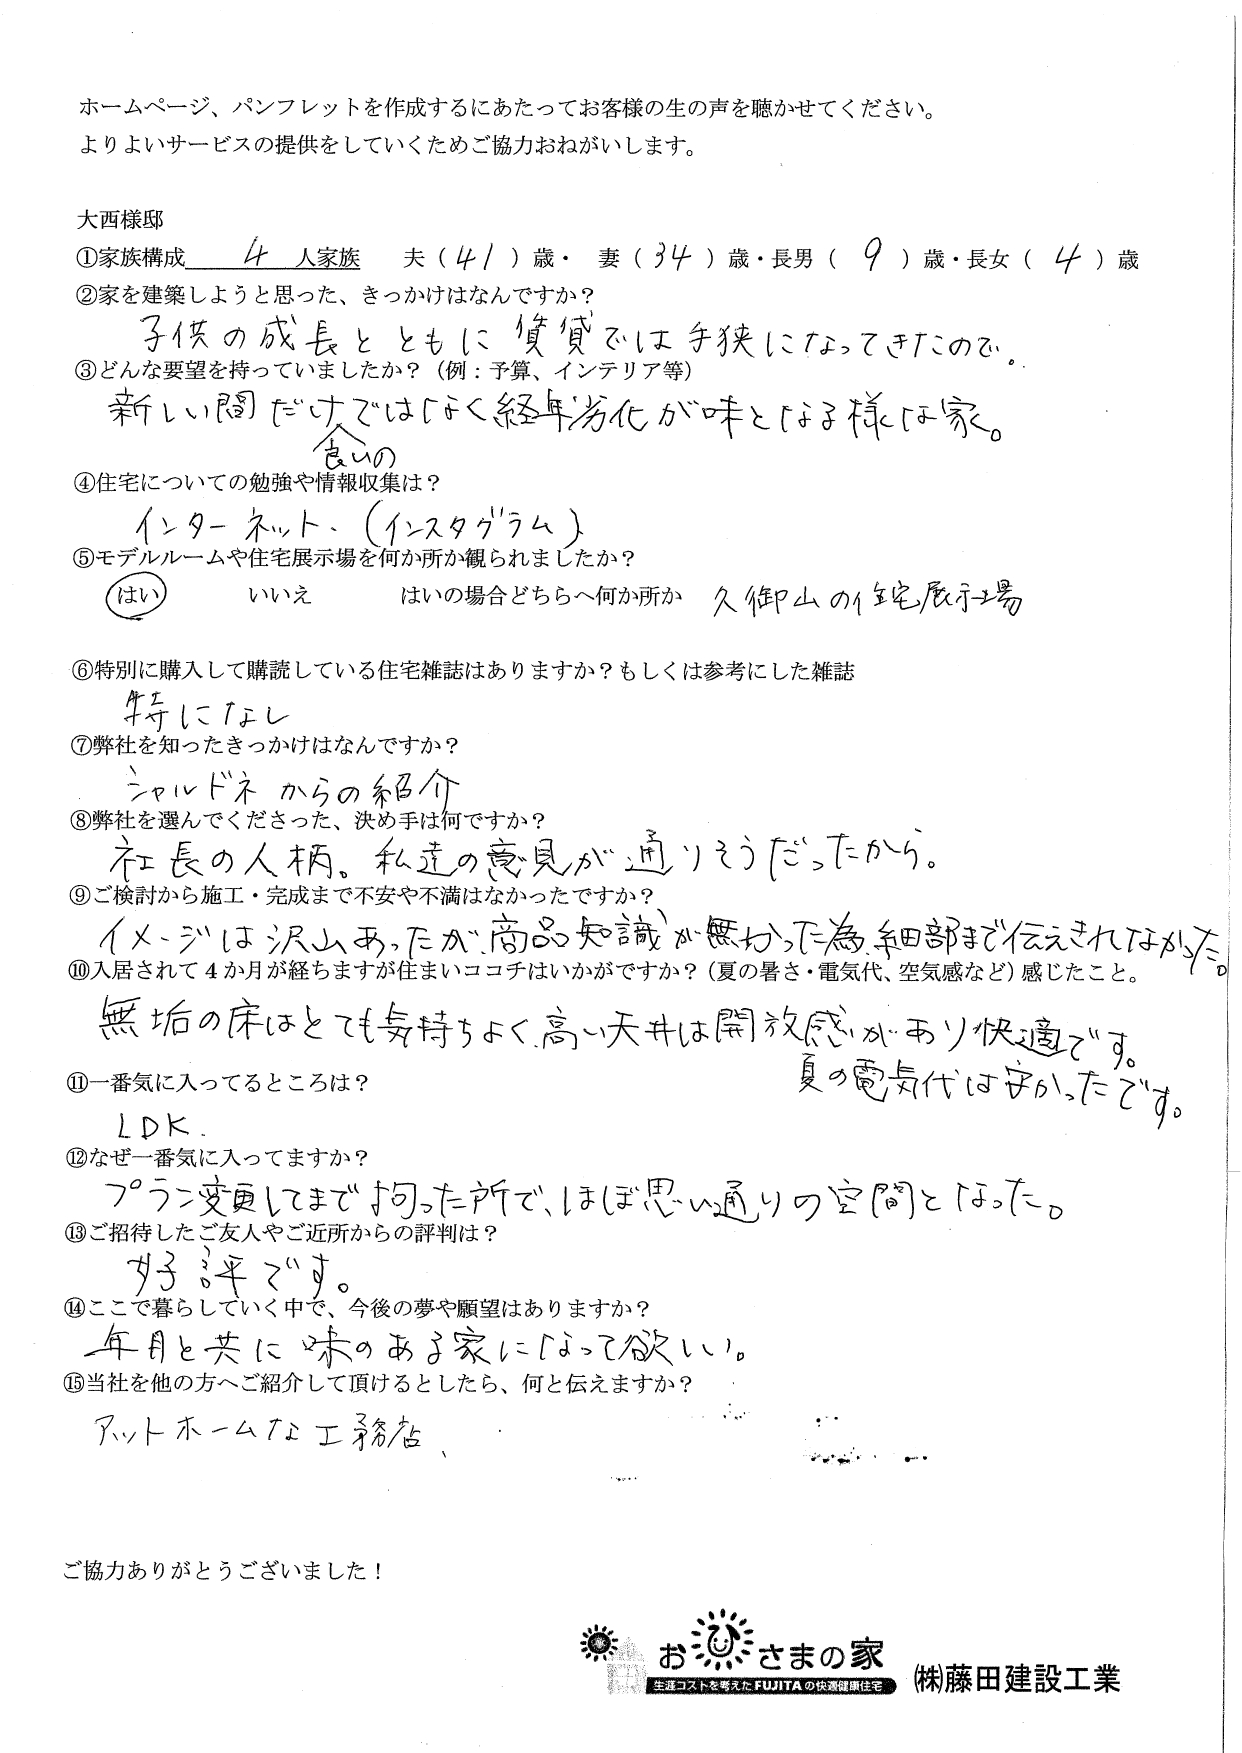 ホームページ、パンフレットを作成するにあたってお客様の生の声を聴かせてください。
よりよいサービスの提供をしていくためご協力おねがいします。
大西様邸
①家族構成 4 人家族 夫（41）歳・ 妻（34）歳・長男（ 9 ）歳・長女（ 4 ）歳
②家を建築しようと思った、きっかけはなんですか？
子供の成長とともに賃貸では手狭になってきたので。
③どんな要望を持っていましたか？（例：予算、インテリア等）
新しい間だけではなく経年劣化が味となる様な家。
良いの
④住宅についての勉強や情報収集は？
インターネット、（インスタグラム）
⑤モデルルームや住宅展示場を何か所か観られましたか？
はい いいえ はいの場合どちらへ何か所か 久御山の住宅展示場
⑥特別に購入して購読している住宅雑誌はありますか？もしくは参考にした雑誌
特になし
⑦弊社を知ったきっかけはなんですか？
シャルドネからの紹介
⑧弊社を選んでくださった、決め手は何ですか？
社長の人柄。私達の意見が通りそうだったから。
⑨ご検討から施工・完成まで不安や不満はなかったですか？
イメージは沢山あったが、商品知識が無かった為、細部まで伝えきれなかった。
⑩入居されて４か月が経ちますが住まいココチはいかがですか？（夏の暑さ・電気代、空気感など）感じたこと。
無垢の床はとても気持ちよく、高い天井は開放感があり快適です。
夏の電気代は安かったです。
⑪一番気に入ってるところは？
LDK.
⑫なぜ一番気に入ってますか？
プラン変更してまで拘った所で、ほぼ思い通りの空間となった。
⑬ご招待したご友人やご近所からの評判は？
好評です。
⑭ここで暮らしていく中で、今後の夢や願望はありますか？
年月と共に味のある家になって欲しい。
⑮当社を他の方へご紹介して頂けるとしたら、何と伝えますか？
アットホームな工務店、
ご協力ありがとうございました！
おひさまの家
生涯コストを考えたFUJITAの快適健康住宅
㈱藤田建設工業